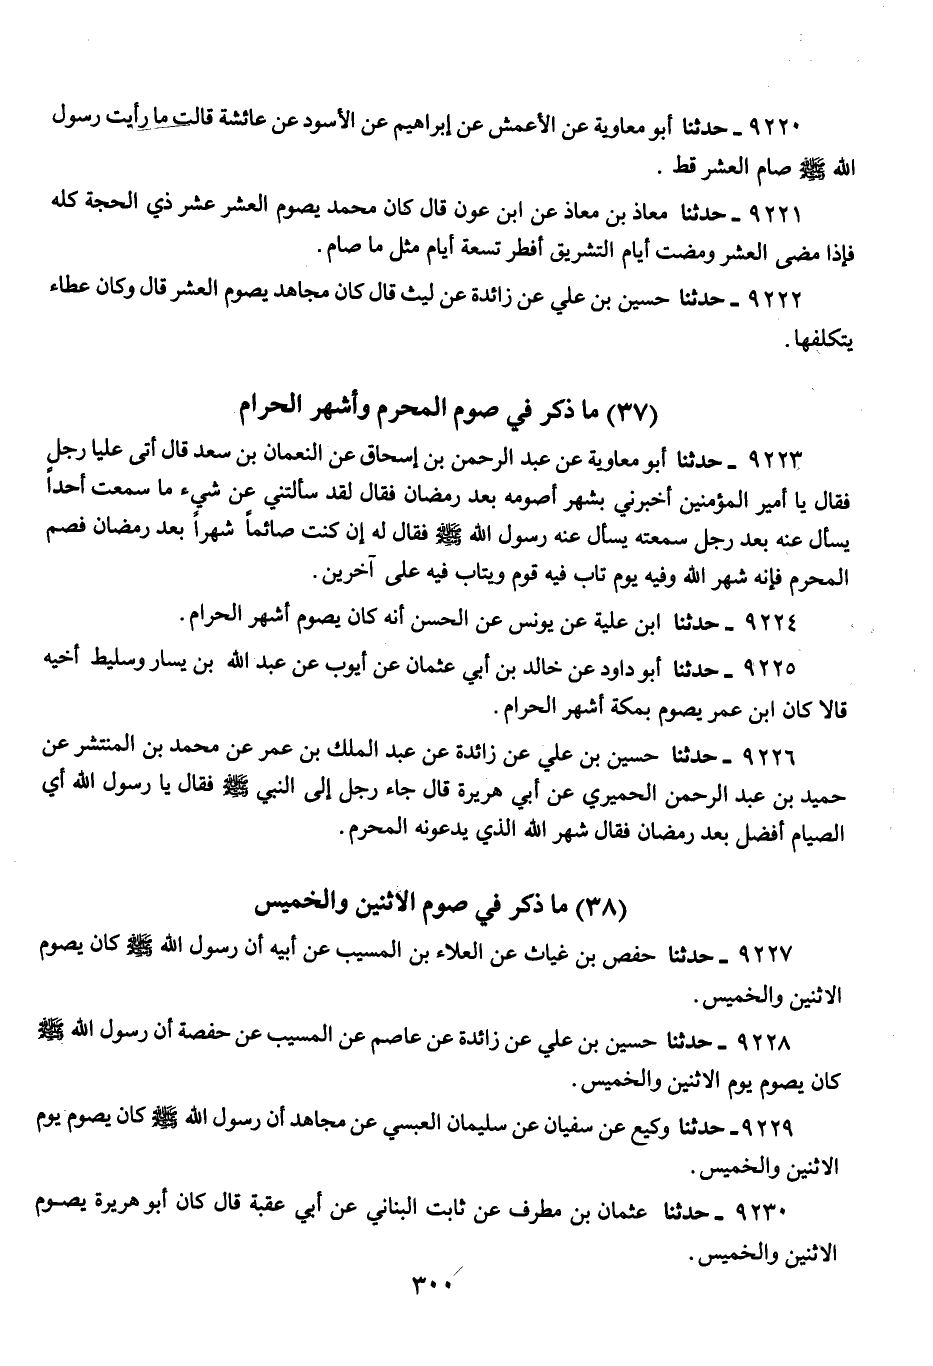 ٩٢٢٠ ـ حدثنا أبو معاوية عن الأعمش عن إبراهيم عن الأسود عن عائشة قالت ما رأيت رسول
الله ﷺ صام العشر قط .
٩٢٢١ ـ حدثنا معاذ بن معاذ عن ابن عون قال كان محمد يصوم العشر عشر ذي الحجة كله
فإذا مضى العشر ومضت أيام التشريق أفطر تسعة أيام مثل ما صام.
٩٢٢٢ ـ حدثنا حسين بن علي عن زائدة عن ليث قال كان مجاهد يصوم العشر قال وكان عطاء
يتكلفها.
(٣٧) ما ذكر في صوم المحرم وأشهر الحرام
٩٢٢٣ ـ حدثنا أبو معاوية عن عبد الرحمن بن إسحاق عن النعمان بن سعد قال أتى عليا رجل
فقال يا أمير المؤمنين أخبرني بشهر أصومه بعد رمضان فقال لقد سألتني عن شيء ما سمعت أحداً
يسأل عنه بعد رجل سمعته يسأل عنه رسول الله ﷺ فقال له إن كنت صائماً شهراً بعد رمضان فصم
المحرم فإنه شهر الله وفيه يوم تاب فيه قوم ويتاب فيه على آخرين.
٩٢٢٤ ـ حدثنا ابن علية عن يونس عن الحسن أنه كان يصوم أشهر الحرام.
٩٢٢٥ ـ حدثنا أبو داود عن خالد بن أبي عثمان عن أيوب عن عبد الله بن يسار وسليط أخيه
قالا كان ابن عمر يصوم بمكة أشهر الحرام.
٩٢٢٦ ـ حدثنا حسين بن علي عن زائدة عن عبد الملك بن عمر عن محمد بن المنتشر عن
حميد بن عبد الرحمن الحميري عن أبي هريرة قال جاء رجل إلى النبي ﷺ فقال يا رسول الله أي
الصيام أفضل بعد رمضان فقال شهر الله الذي يدعونه المحرم.
(٣٨) ما ذكر في صوم الاثنين والخميس
٩٢٢٧ ـ حدثنا حفص بن غياث عن العلاء بن المسيب عن أبيه أن رسول الله ﷺ كان يصوم
الاثنين والخميس.
٩٢٢٨ ـ حدثنا حسين بن علي عن زائدة عن عاصم عن المسيب عن حفصة أن رسول الله ﷺ
كان يصوم يوم الاثنين والخميس.
٩٢٢٩ـ حدثنا وكيع عن سفيان عن سليمان العبسي عن مجاهد أن رسول الله ﷺ كان يصوم يوم
الاثنين والخميس.
٩٢٣٠ ـ حدثنا عثمان بن مطرف عن ثابت البناني عن أبي عقبة قال كان أبو هريرة يصوم
الاثنين والخميس.
٣٠٠